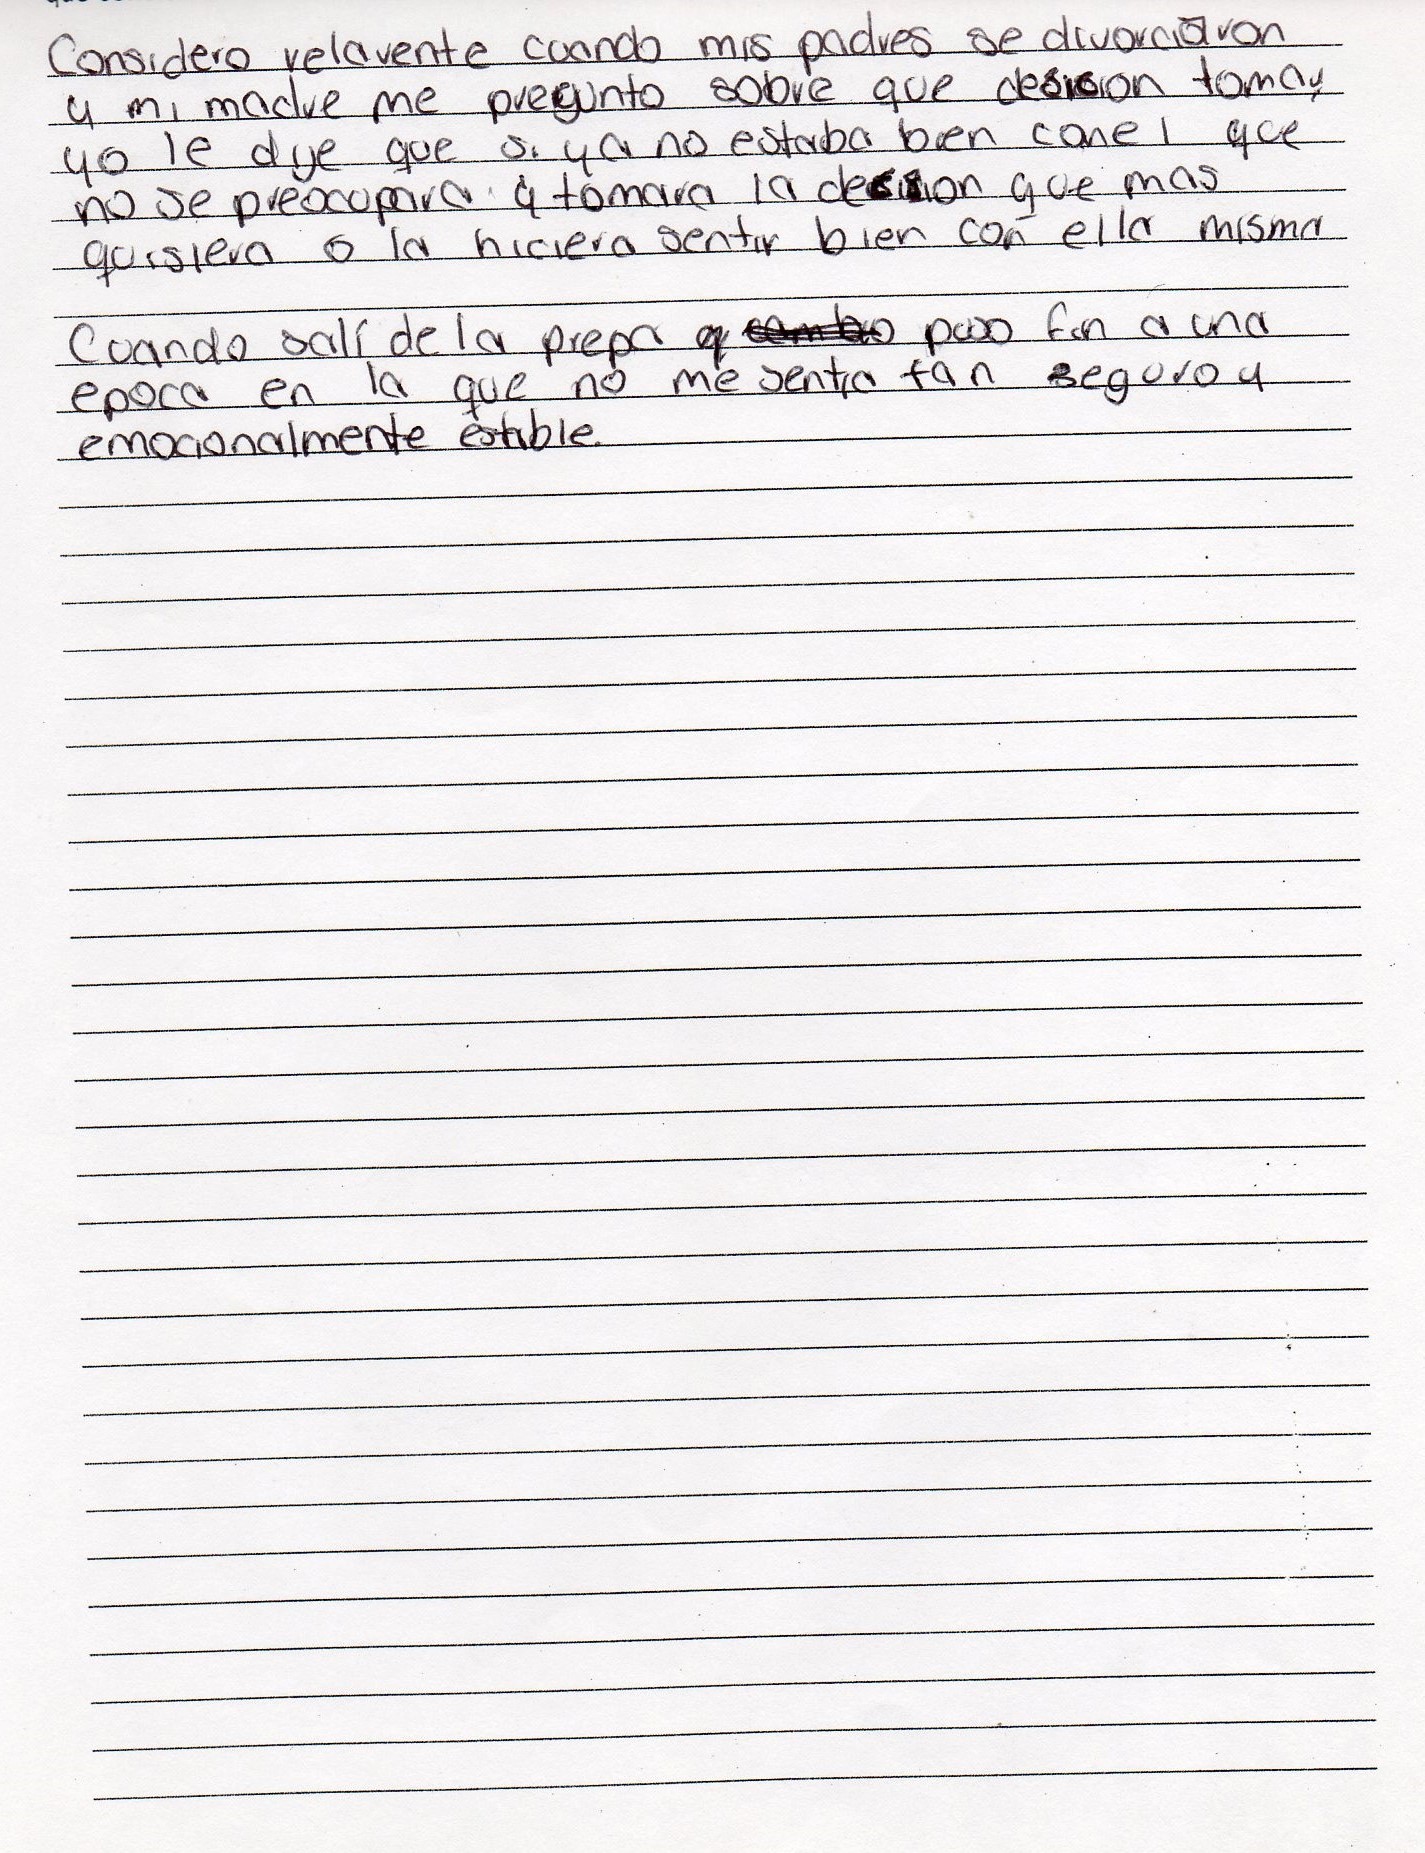 Considero relavente cuando mis padres se divorciaron
y mi madre me pregunto sobre que decision tomar
yo le dije que si ya no estaba bien con el que
no se preocupara y tomara la decision que mas
quisiera o la hiciera sentir bien con ella misma
Cuando salí de la prepa y puso fin a una
epoca en la que no me sentia tan seguro y
emocionalmente estable.